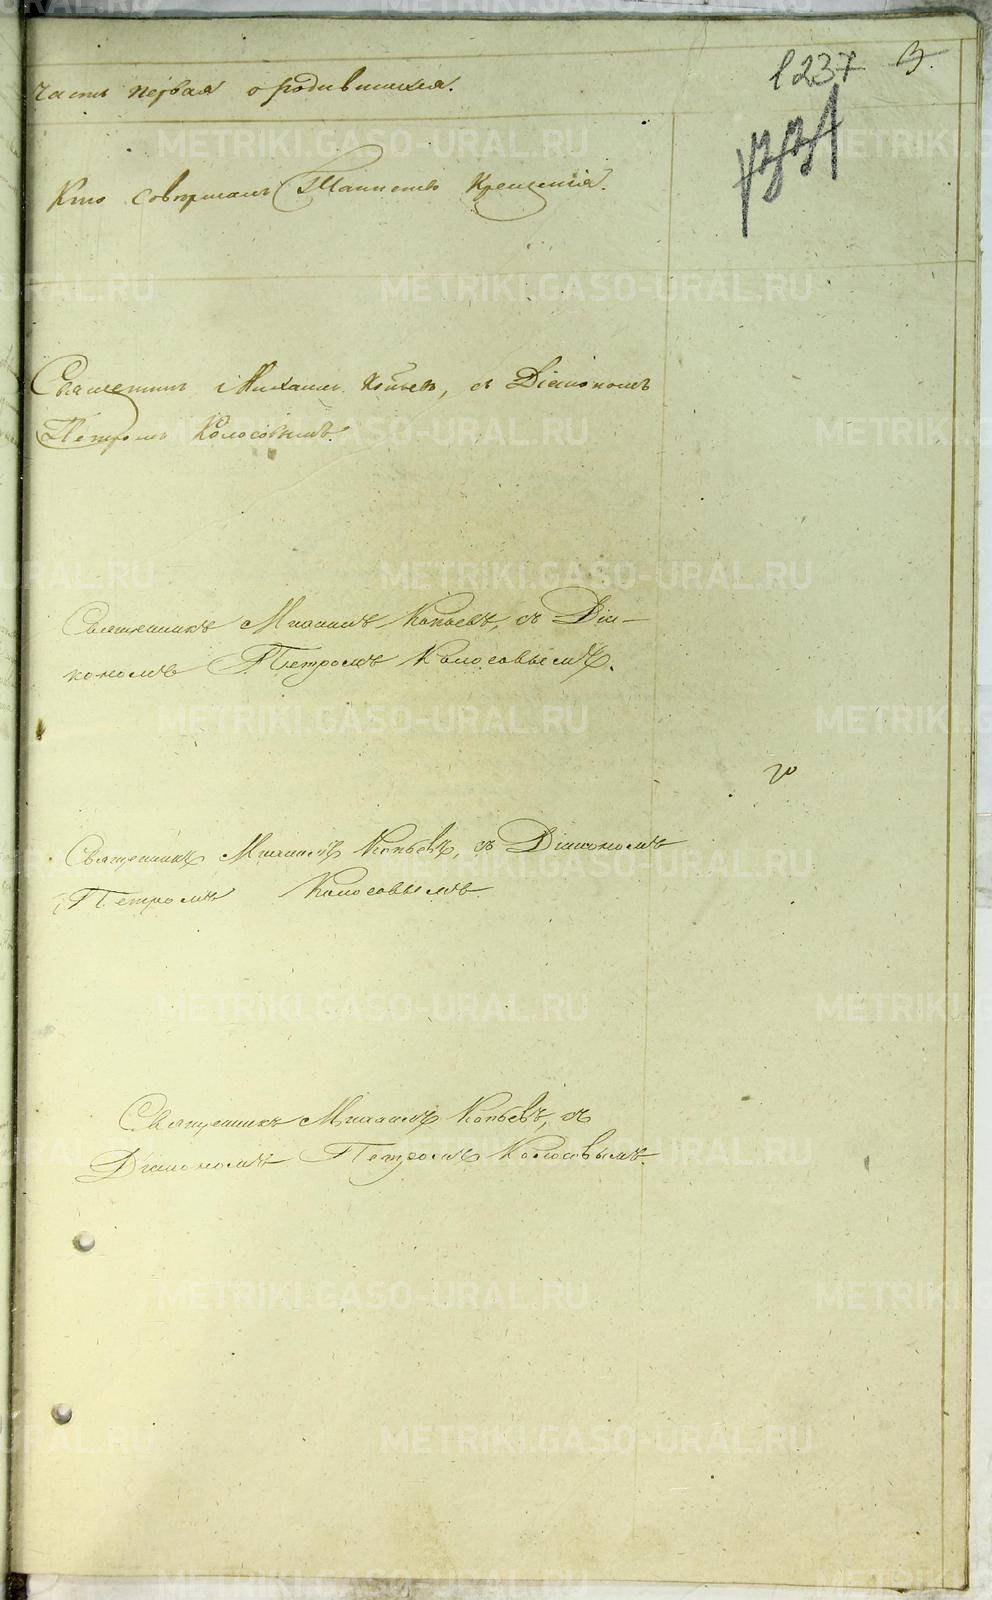 1237
3.
часть первая о родившихся.
Кто совершалъ Таинство Крещенія.
Священникъ Михаилъ Копьевъ, съ Діакономъ
Петромъ Колосовымъ.
Священникъ Михаилъ Копьевъ, съ Діа-
кономъ Петромъ Колосовымъ.
Священникъ Михаилъ Копьевъ, съ Діакономъ
Петромъ Колосовымъ
Священникъ Михаилъ Копьевъ, съ
Діакономъ Петромъ Колосовымъ.
METRIKI.GASO-URAL.RU